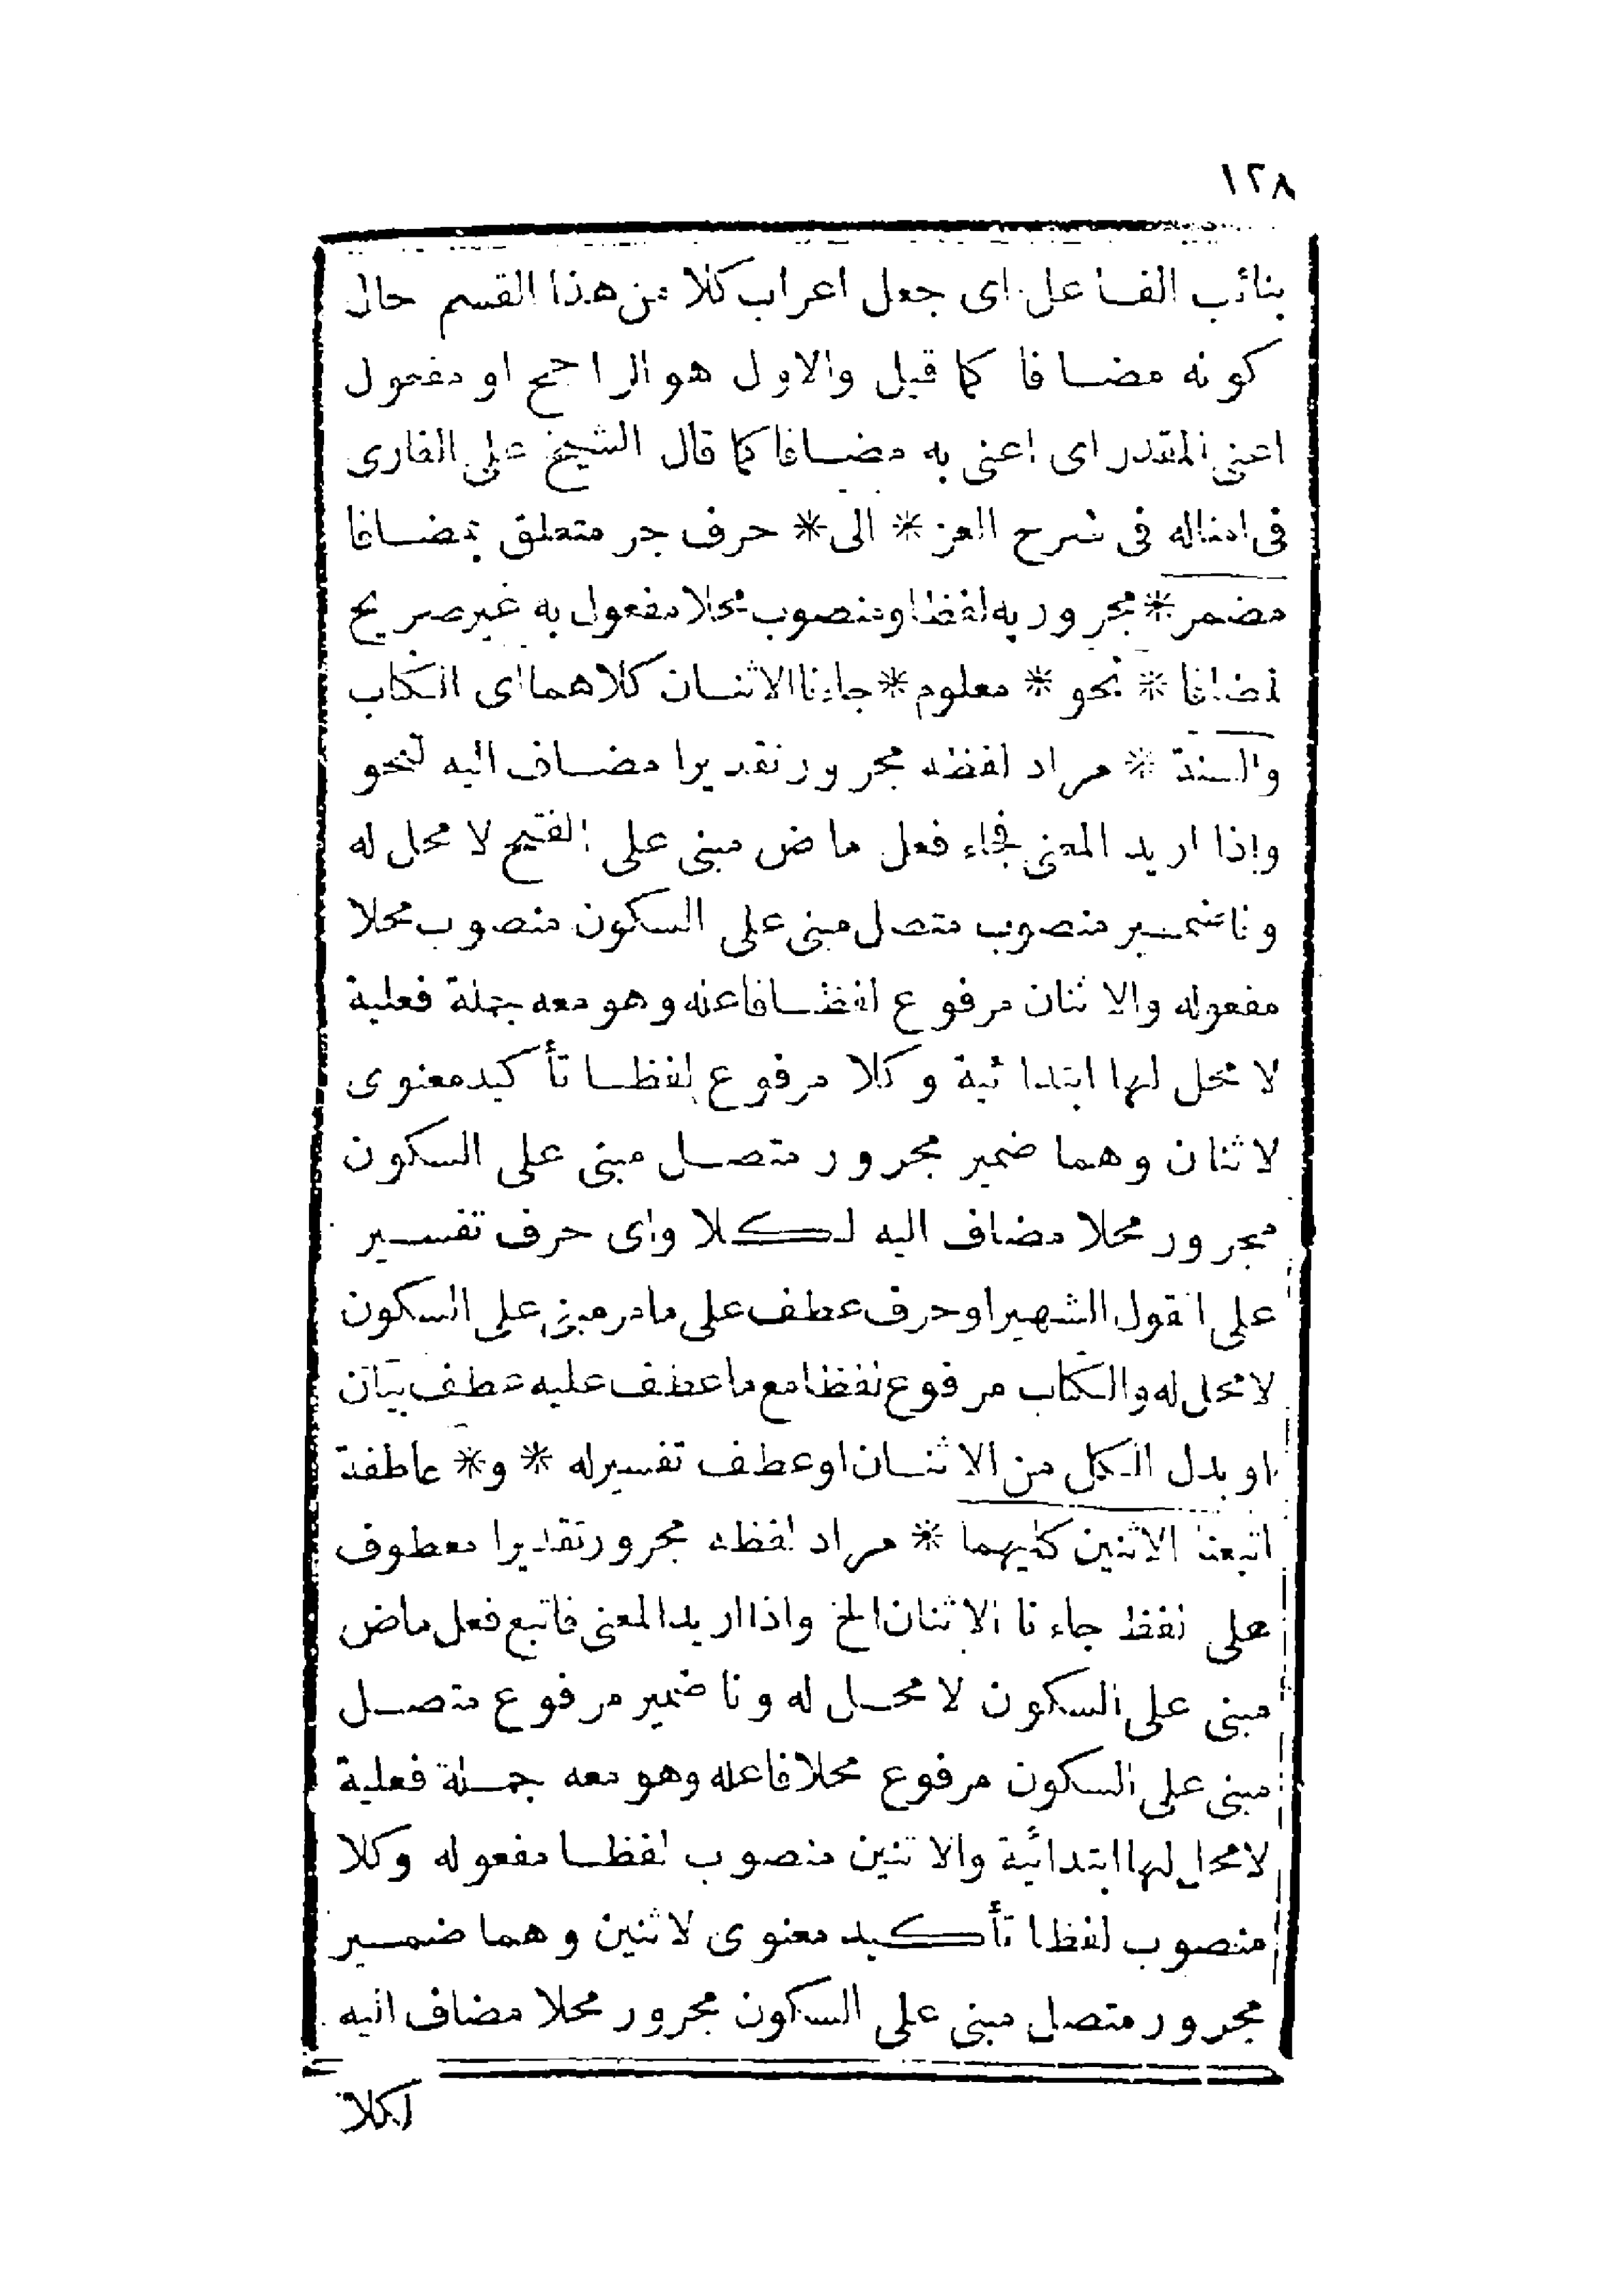 ١٢٨
بنائب الفاعل اى جعل اعراب كلا من هذا القسم حال
كونه مضافا كما قيل والاول هو الراجح او مفعول
اعنى المقدر اى اعنى به مضافا كما قال الشيخ على القارى
فى امثاله فى شرح العز * الى * حرف جر متعلق بمضافا
مضمر * مجرور به لفظا ومنصوب محلا مفعول به غير صريح
لمضافا * نحو * معلوم * جاءنا الاثنان كلاهما اى الكتاب
والسنة * مراد لفظه مجرور تقديرا مضاف اليه لنحو
واذا اريد المعنى فجاء فعل ماض مبنى على الفتح لا محل له
ونا ضمير منصوب متصل مبنى على السكون منصوب محلا
مفعوله والاثنان مرفوع لفظا فاعله وهو معه جملة فعلية
لا محل لها ابتدائية وكلا مرفوع لفظا تأكيد معنوى
لاثنان وهما ضمير مجرور متصل مبنى على السكون
مجرور محلا مضاف اليه لكلا واى حرف تفسير
على القول الشهير او حرف عطف على ما مر مبنى على السكون
لا محل له والكتاب مرفوع لفظا مع ما عطف عليه عطف بيان
او بدل الكل من الاثنان او عطف تفسير له * و * عاطفة
اتبعنا الاثنين كليهما * مراد لفظه مجرور تقديرا معطوف
على لفظ جاءنا الاثنان الخ واذا اريد المعنى فاتبع فعل ماض
مبنى على السكون لا محل له ونا ضمير مرفوع متصل
مبنى على السكون مرفوع محلا فاعله وهو معه جملة فعلية
لا محل لها ابتدائية والاثنين منصوب لفظا مفعوله وكلا
منصوب لفظا تأكيد معنوى لاثنين وهما ضمير
مجرور متصل مبنى على السكون مجرور محلا مضاف اليه
لكلا